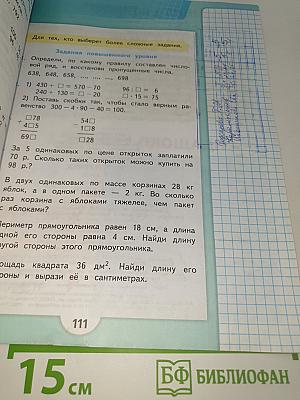 Для тех, кто выберет более сложные задания.
Задания повышенного уровня
Определи, по какому правилу составлен число-
вой ряд, и восстанови пропущенные числа.
638, 648, 658, ..., ..., ..., 698
1) 430 + □ = 570 - 70 96 : □ = 6
240 + 130 = □ - 20 □ · 15 = 75
2) Поставь скобки так, чтобы стало верным ра-
венство 300 - 4 · 90 - 40 = 100.
□78 54□
+ 4□5 1□8
69□ □28
За 5 одинаковых по цене открыток заплатили
70 р. Сколько таких открыток можно купить на
98 р.?
В двух одинаковых по массе корзинах 28 кг
яблок, а в одном пакете — 2 кг. Во сколько
раз корзина с яблоками тяжелее, чем пакет
с яблоками?
Периметр прямоугольника равен 18 см, а длина
одной его стороны равна 4 см. Найди длину
другой стороны этого прямоугольника.
лощадь квадрата 36 дм². Найди длину его
роны и вырази её в сантиметрах.
111
15 см
БФ БИБЛИОФАН